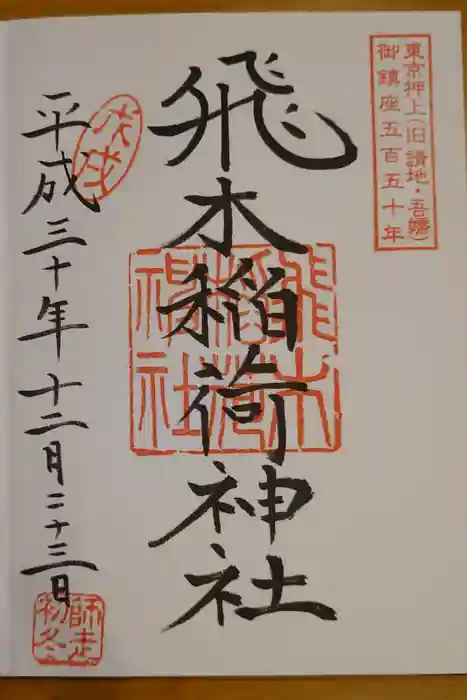 東京押上(旧請地・吾嬬)
御鎮座五百五十年
飛木稲荷神社
飛木稲荷神社
戊戌
平成三十年十二月二十三日
師走
初冬